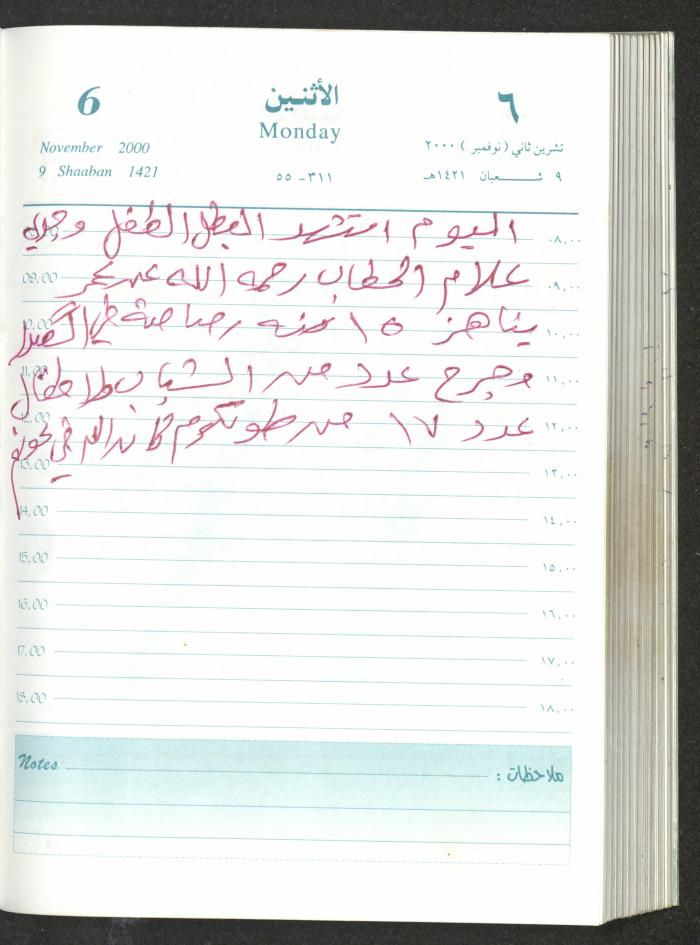 6
الأثنين
٦
Monday
November 2000
تشرين ثاني ( نوفمبر ) ٢٠٠٠
9 Shaaban 1421
٣١١-٥٥
٩ شعبان ١٤٢١هـ
اليوم استشهد البطل الطفل وجدي ٠٨,٠٠
09,00 علام الحطاب رحمه الله عن عمر ٠٩,٠٠
10,00 يناهز ١٥ سنه رصاصة في الصدر ١٠,٠٠
11,00 وجرح عدد من الشباب الاطفال ١١,٠٠
12,00 عدد ١٧ من طولكرم كان الله في عونهم ١٢,٠٠
13,00 ١٣,٠٠
14,00 ١٤,٠٠
15,00 ١٥,٠٠
16,00 ١٦,٠٠
17,00 ١٧,٠٠
18,00 ١٨,٠٠
Notes ملاحظات :